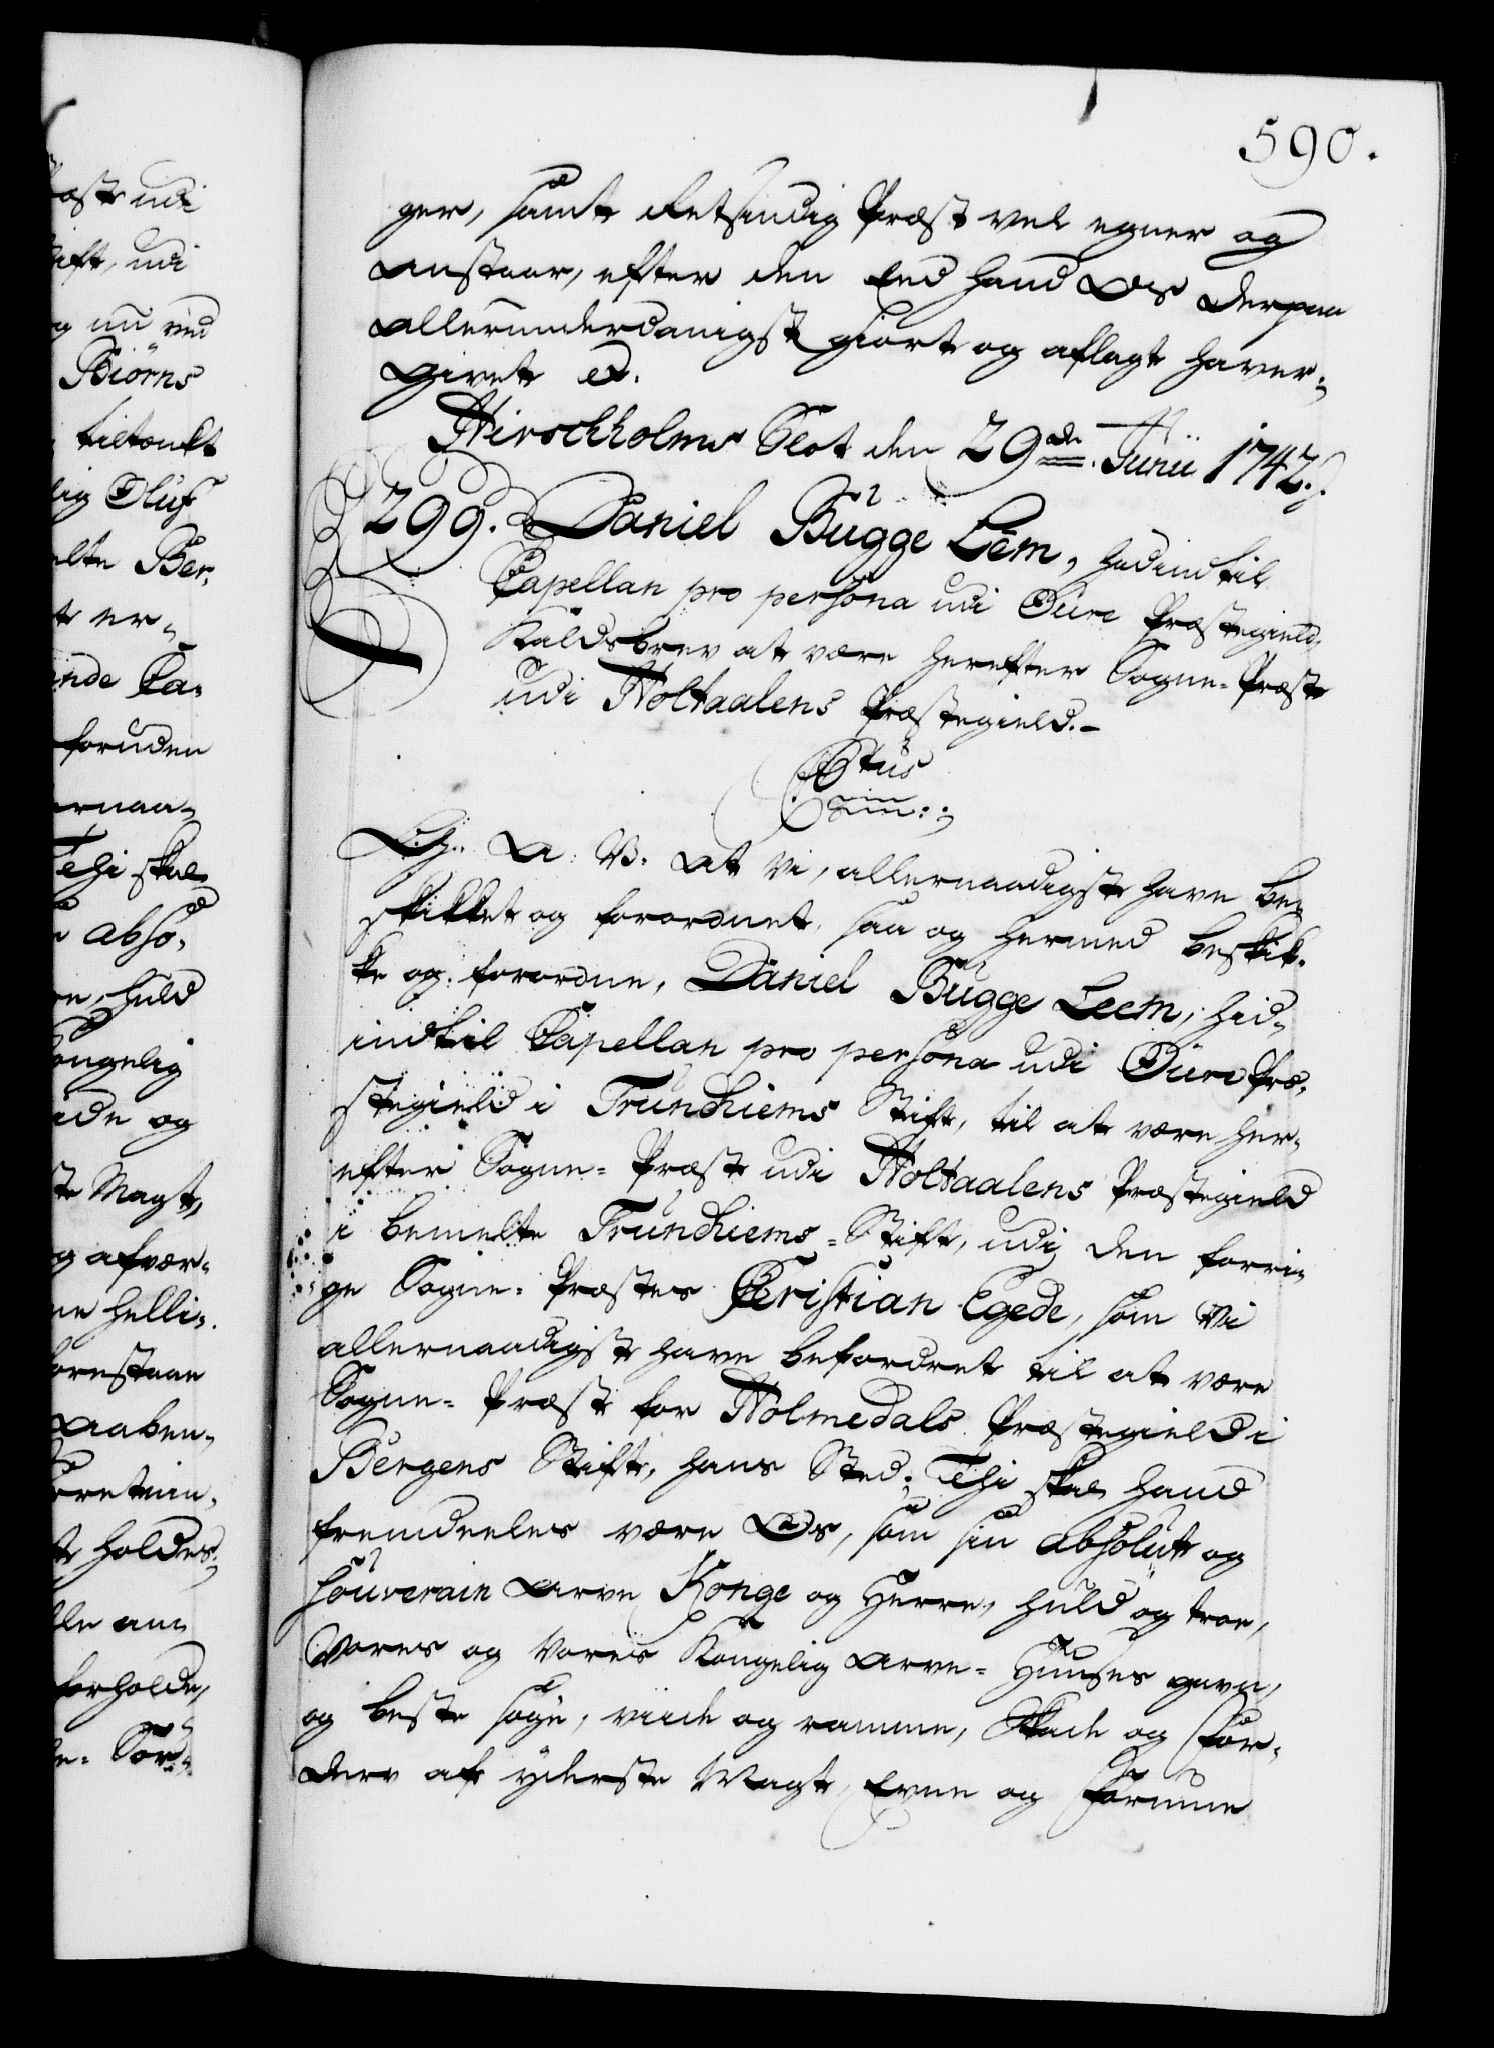 590.
ger, samt Retsindig Præst vel egner og
anstaar, efter den Eed hand Os derpaa
allerunderdanigst giort og aflagt haver.
Givet &.
Hirschholms Slot den 29de Junii 1742.
299. Daniel Bügge Lem, hidindtil
Capellan pro persona udi Œure Præstegield,
Kaldsbrev at være herefter Sogne-Præst
udi Holtaalens Præstegield.
C. G. A: V. at Vi, allernaadigst have be-
skikket og forordnet, saa og hermed beskik-
ke og forordne, Daniel Bügge Leem, hid-
indtil Capellan pro persona udi Œure Præ-
stegield i Trundhiems Stift, til at være her-
efter Sogne-Præst udi Holtaalens Præstegield
i bemelte Trundhiems-Stift, udi den forri-
ge Sogne-Præstes Christian Egede, som Vi
allernaadigst have befordret til at være
Sogne-Præst for Holmedals Præstegield i
Bergens Stift, hans Sted; Thi skal hand
fremdeeles være Os, som sin absolut og
souverain Arve Konge og Herre, huld og troe,
Vores og Vores Kongelig Arve-Huuses gavn,
og beste søge, viide og ramme, Skade og For-
derv af yderste Magt, Evne og Formue